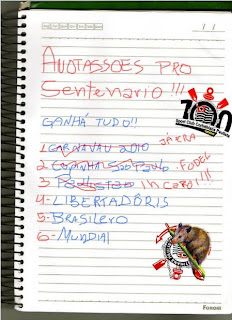 ANOTASSÕES PRO
Sentenario !!!
GANHÁ TUDO!!
1 CARNAVAU 2010 JÁ ERA
2 COPINHA São Paulo - FODEL
3 Paulistão IH CARAI!!!
4- LIBERTADÔRIS
5- BRASILERO
6- MUNDIAL
100
FORONI